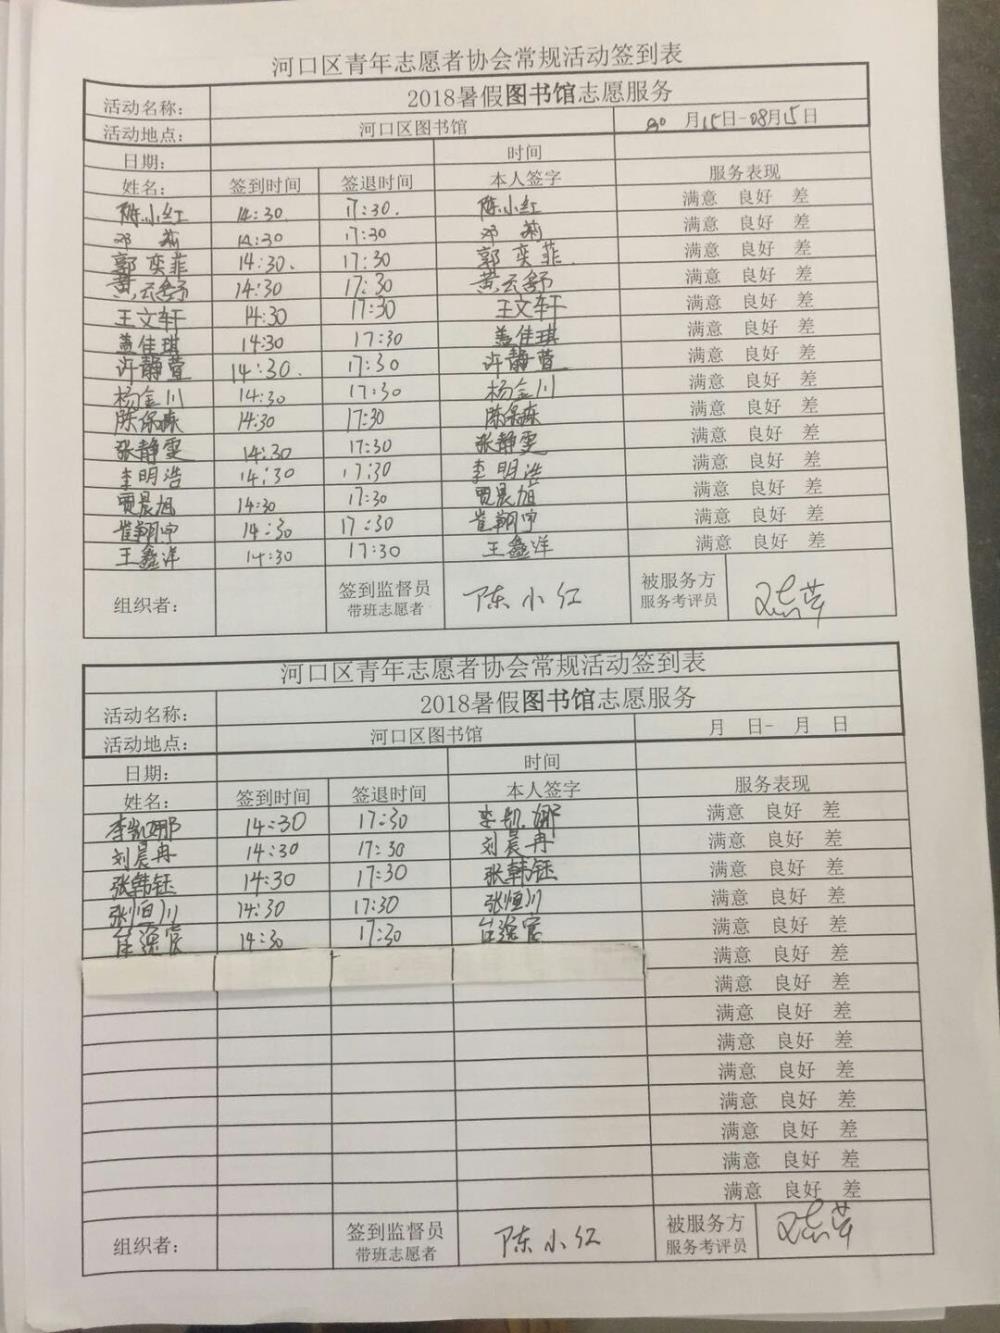 河口区青年志愿者协会常规活动签到表
活动名称： 2018暑假图书馆志愿服务
活动地点： 河口区图书馆 月15日-08月15日
日期： 时间
姓名： 签到时间 签退时间 本人签字 服务表现
陈小红 14:30. 17:30. 陈小红 满意 良好 差
邓莉 14:30 17:30 邓莉 满意 良好 差
郭奕菲 14:30. 17:30 郭奕菲. 满意 良好 差
黄云舒 14:30 17:30 黄云舒 满意 良好 差
王文轩 14:30 17:30 王文轩 满意 良好 差
盖佳琪 14:30 17:30 盖佳琪 满意 良好 差
许静萱 14:30. 17:30 许静萱 满意 良好 差
杨金川 14:30 17:30 杨金川 满意 良好 差
陈保森 14:30 17:30 陈保森 满意 良好 差
张静雯 14:30 17:30 张静雯 满意 良好 差
李明浩 14:30 17:30 李明浩 满意 良好 差
贾晨旭 14:30 17:30 贾晨旭 满意 良好 差
崔翔宇 14:30 17:30 崔翔宇 满意 良好 差
王鑫洋 14:30 17:30 王鑫洋 满意 良好 差
组织者： 签到监督员 陈小红 被服务方
带班志愿者 服务考评员
河口区青年志愿者协会常规活动签到表
活动名称： 2018暑假图书馆志愿服务
活动地点： 河口区图书馆 月 日- 月 日
日期： 时间
姓名： 签到时间 签退时间 本人签字 服务表现
李凯娜 14:30 17:30 李凯娜 满意 良好 差
刘晨冉 14:30 17:30 刘晨冉 满意 良好 差
张韩钰 14:30 17:30 张韩钰 满意 良好 差
张恒川 14:30 17:30 张恒川 满意 良好 差
14:30 17:30 满意 良好 差
满意 良好 差
满意 良好 差
满意 良好 差
满意 良好 差
满意 良好 差
满意 良好 差
满意 良好 差
满意 良好 差
满意 良好 差
组织者： 签到监督员 陈小红 被服务方
带班志愿者 服务考评员